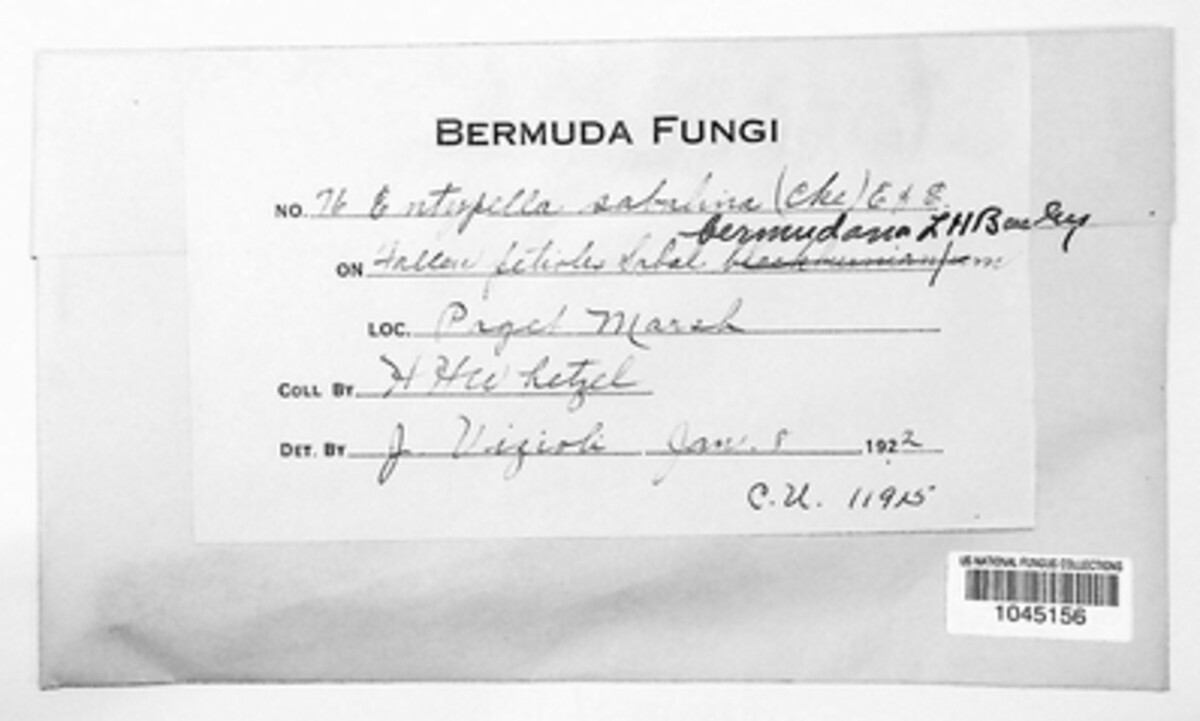 BERMUDA FUNGI
NO. 76 Entypella sabalina (Cke) E & E.
bermudana L H Bailey
ON Fallen petioles Sabal blackburnianum
LOC. Paget Marsh
COLL BY H H Whetzel
DET. BY J. Vizioli Jan. 8 1922
C.U. 11915
US NATIONAL FUNGUS COLLECTIONS
1045156